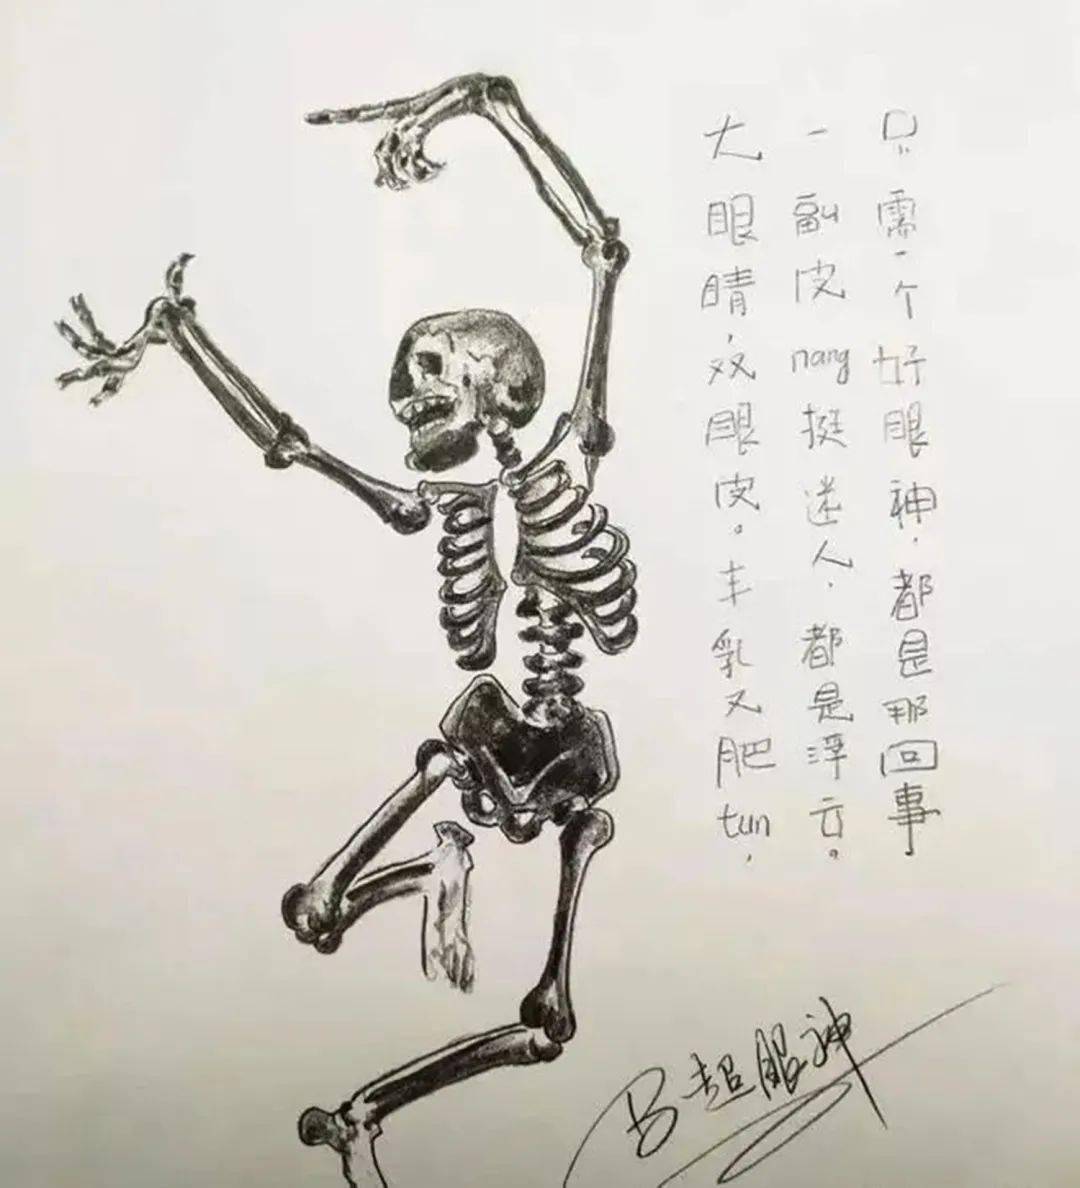 大眼睛,双眼皮。丰乳又肥tun,
一副皮nang挺迷人,都是浮云。
只需一个好眼神,都是那回事
B超眼神